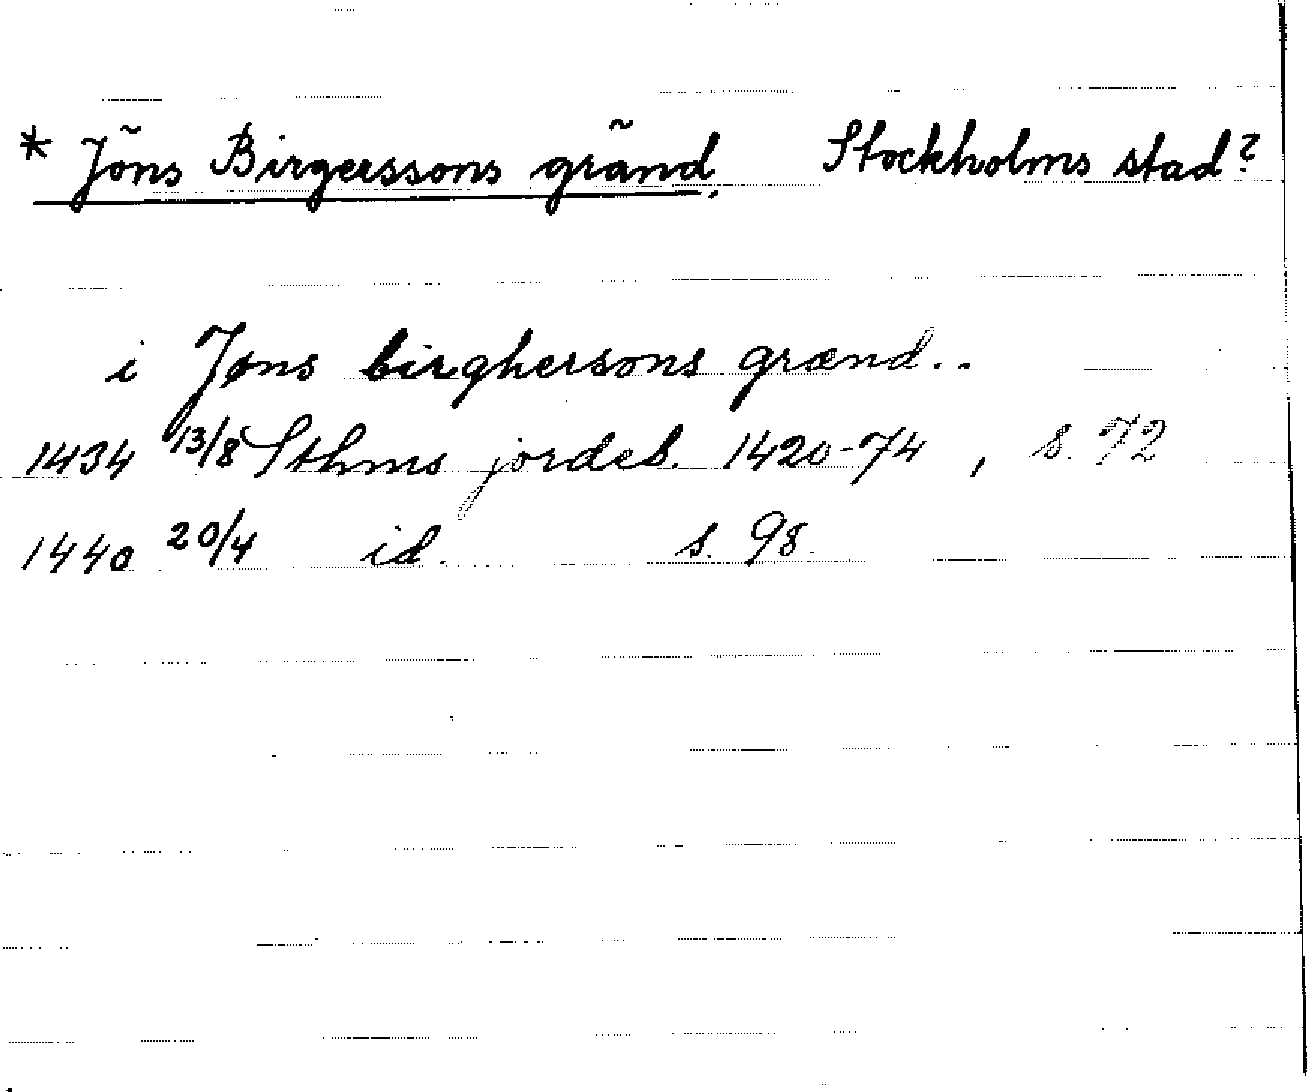 * Jöns Birgerssons gränd, Stockholms stad?
i Jøns birghersons grænd..
1434 13/8 Sthms jordeb. 1420-74, s. 72
1440 20/4 id. s. 98.